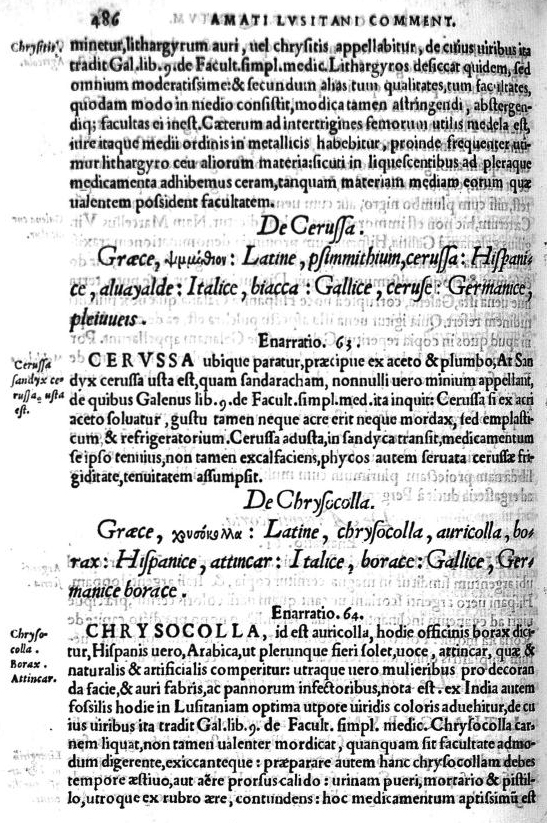 486 AMATI LVSITANI COMMENT.
Chrysitis. minetur, lithargyrum auri, uel chrysitis appellabitur, de cuius uiribus ita
tradit Gal. lib. 9. de Facult. simpl. medic. Lithargyros desiccat quidem, sed
omnium moderatissime: & secundum alias tum qualitates, tum facultates,
quodam modo in medio consistit, modica tamen astringendi, abstergen-
diq; facultas ei inest. Cæterum ad intertrigines femorum utilis medela est,
iure itaque medii ordinis in metallicis habebitur, proinde frequenter uti-
mur lithargyro ceu aliorum materia: sicuti in liquescentibus ad pleraque
medicamenta adhibemus ceram, tanquam materiam mediam eorum quæ
ualentem possident facultatem.
De Cerussa.
Græce, ψιμμύθιον: Latine, psimmithium, cerussa: Hispani-
ce, aluayalde: Italice, biacca: Gallice, ceruse: Germanice,
pleiuueis.
Enarratio. 63.
Cerussa
sandyx ce-
russa, usta
est.
CERVSSA ubique paratur, præcipue ex aceto & plumbo, At San
dyx cerussa usta est, quam sandaracham, nonnulli uero minium appellant,
de quibus Galenus lib. 9. de Facult. simpl. med. ita inquit: Cerussa si ex acri
aceto soluatur, gustu tamen neque acre erit neque mordax, sed emplasti-
cum, & refrigeratorium. Cerussa adusta, in sandyca transit, medicamentum
se ipso tenuius, non tamen excalfaciens, phycos autem seruata cerussæ fri-
giditate, tenuitatem assumpsit.
De Chrysocolla.
Græce, χρυσόκολλα: Latine, chrysocolla, auricolla, bo-
rax: Hispanice, attincar: Italice, borace: Gallice, Ger-
manice borace.
Enarratio. 64.
Chryso-
colla.
Borax.
Attincar.
CHRYSOCOLLA, id est auricolla, hodie officinis borax dici-
tur, Hispanis uero, Arabica, ut plerunque fieri solet, uoce, attincar, quæ &
naturalis & artificialis comperitur: utraque uero mulieribus pro decoran
da facie, & auri fabris, ac pannorum infectoribus, nota est. ex India autem
fossilis hodie in Lusitaniam optima utpote uiridis coloris aduehitur, de cu
ius uiribus ita tradit Gal. lib. 9. de Facult. simpl. medic. Chrysocolla car-
nem liquat, non tamen ualenter mordicat, quanquam sit facultate admo-
dum digerente, exiccanteque: præparare autem hanc chrysocollam debes
tempore æstiuo, aut aëre prorsus calido: urinam pueri, mortario & pistil-
lo, utroque ex rubro ære, contundens: hoc medicamentum aptissimũ est